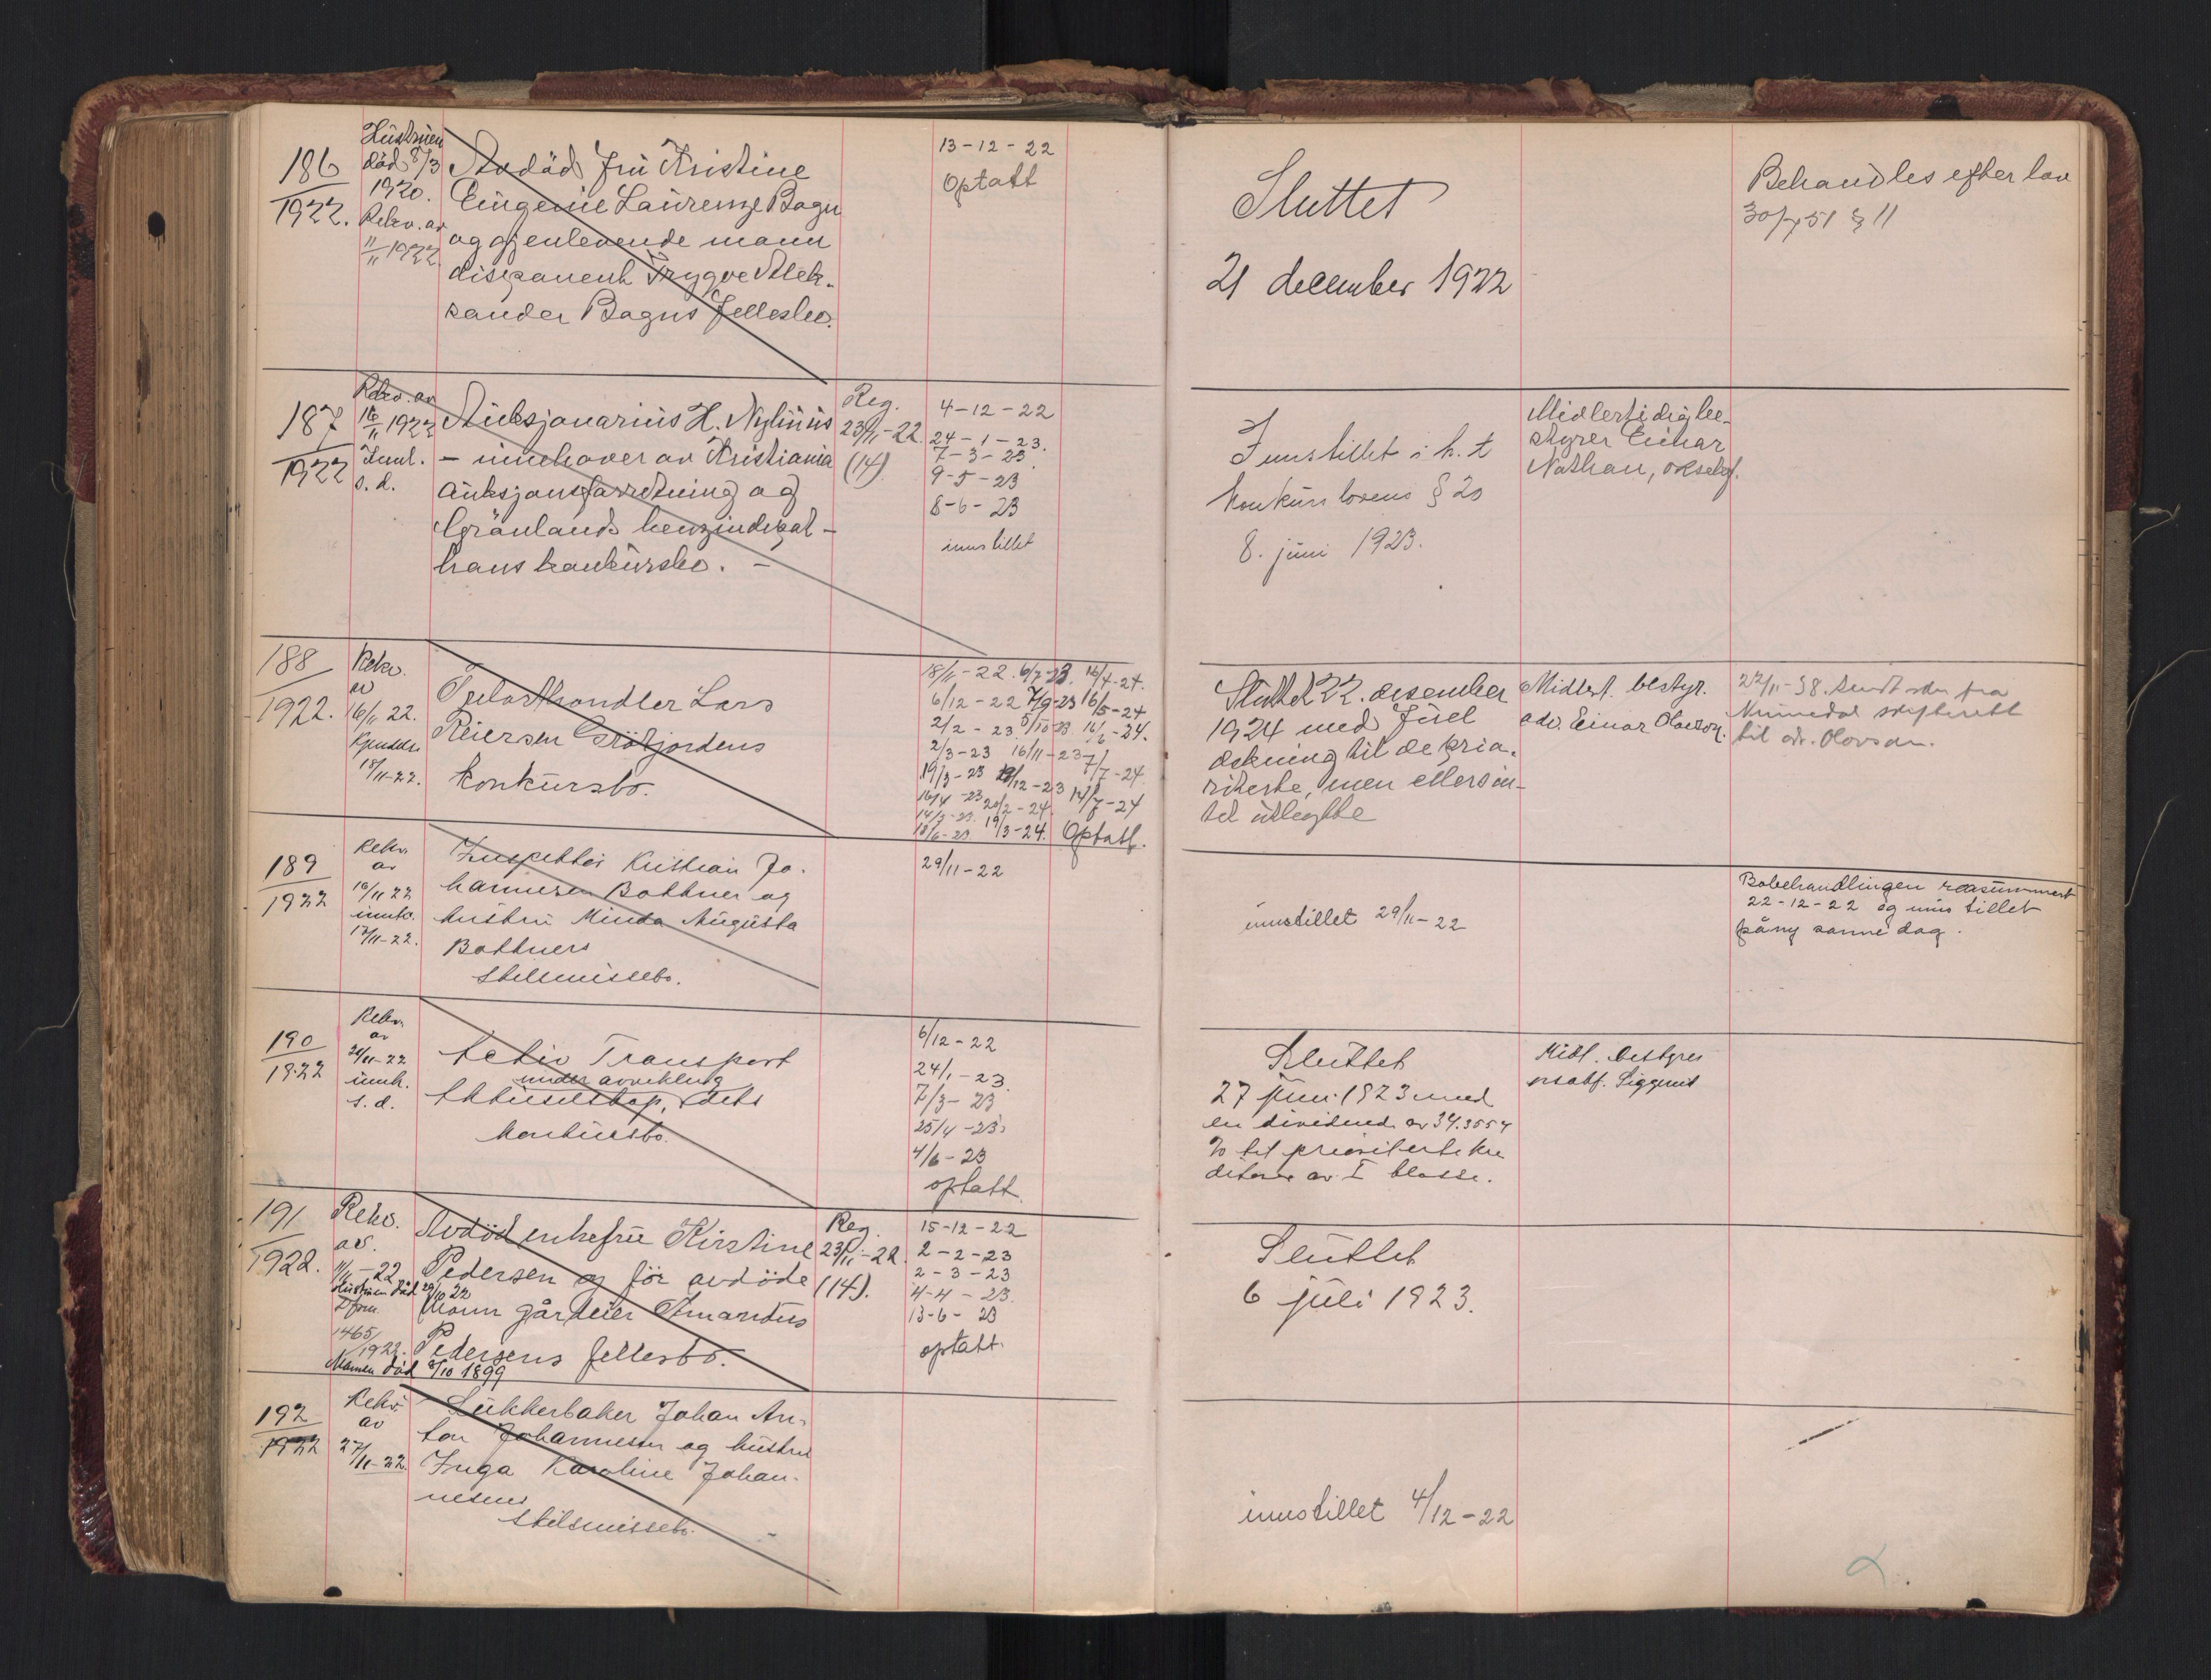 186
1922.
Hustruen
död 8/3
1920.
Rekv. av
11/11 1922.
Avdöd fru Kristine
Eugenie Laurenze Bagn
og gjenlevende mann
disponent Trygve Alek-
sander Bagns fellesbo.
13-12-22
Optatt
Sluttet
21 december 1922
Behandles efter lov
30/7 51 § 11
187
1922
Rekv. av
16/11 1922
Innk.
s. d.
Auksjonarius H. Nylinius
- innehaver av Kristiania
auksjonsforretning og
Grönlands benzindepot -
hans konkursbo. -
Reg.
23/11-22.
(14)
4-12-22
24-1-23.
7-3-23
9-5-23
8-6-23
innstillet
Innstillet i h. t
konkurslovens § 20
8. juni 1923.
Midlertidig be-
styrer Einar
Nathan, orsakf.
188
1922.
Rekv.
av
16/11 22.
18/11-22.
Trelasthandler Lars
Reiersen Grötjordens
konkursbo.
18/11-22. 6/7-23. 16/4-24.
6/12-22 7/9-23 16/5-24
2/2-23. 5/10-23 16/6-24.
2/3-23 16/11-23 7/7-24
19/3-23 19/12-23 14/7-24
16/4-23 20/2-24.
14/5-23.
18/6-23. 19/3-24. Optatt.
Sluttet 22. desember
1924 med full
dekning til de prio-
riterte, men ellers in-
tet utlegte
Midlert. bestyr.
adv. Einar Olavson.
22/11-38. Sendt sdn fra
Nummedal skifterett
til adv. Olavson.
189
1922
Rekv.
av
16/11 22
innk.
17/11-22.
Inspektör Kristian Jo-
hannesen Bottner og
hustru Minda Augusta
Bottners
skilsmissebo.
29/11-22
innstillet 29/11-22
Bobehandlingen reasummert
22-12-22 og inns tillet
påny samme dag.
190
1922
Rekv.
av
24/11-22
innk.
s. d.
Activ Transport
under avvikling
Aktieselskap, dets
konkursbo.
6/12-22
24/1-23.
7/3-23
25/4-23
4/6-23
optatt.
Sluttet
27 juni 1923 med
en dividende av 34.3554
% til prioriterte kre
ditorer av I klasse.
Midl. bestyrer
191
1922.
Rekv.
av.
11/11-22
Hustruen död 29/10 22
D. form.
1465/1922.
Mannen död 8/10 1899
Avdöd enkefru Kirstine
Pedersen og för avdöde
Mann gårdeier Amandus
Pedersens fellesbo.
Reg.
23/11-22.
(14).
15-12-22
2-2-23
2-3-23
4-4-23.
13-6-23
optatt.
Sluttet
6 juli 1923.
192
1922
Rekv.
av
27/11-22.
Sukkerbaker Johan An-
ton Johannesen og hustru
Inga Karoline Johan-
nesens
skilsmissebo.
innstillet 4/12-22